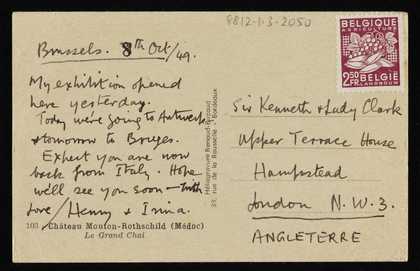 8812-1-3-2050
Brussels. 8th Oct/49.
My exhibition opened
here yesterday.
Today we're going to Antwerp
& tomorrow to Bruges.
Expect you are now
back from Italy. Hope
we'll see you soon — with
love / Henry & Irina.
103 Château Mouton-Rothschild (Médoc)
Le Grand Chai
33, rue de la Rousselle - Bordeaux
BELGIQUE
AGRICULTURE
2,50
FR.
BELGIË
LANDBOUW
Sir Kenneth & Lady Clark
Upper Terrace House
Hampstead
London N.W.3.
ANGLETERRE